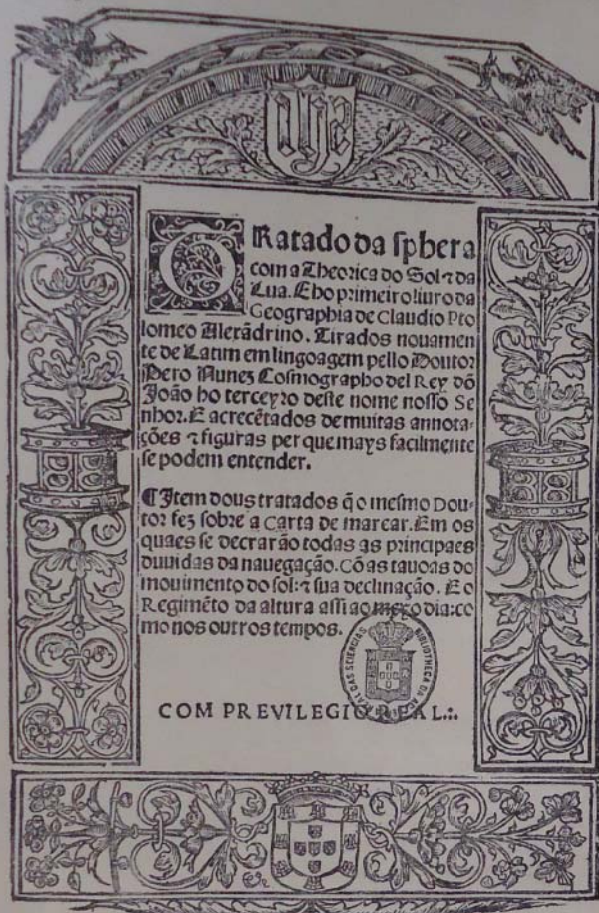 Tratado da sphera
com a Theorica do Sol ⁊ da
Lua. E ho primeiro liuro da
Geographia de Claudio Pto
lomeo Alexãdrino. Tirados nouamen
te de Latim em lingoagem pello Doutor
Pero Nunez Cosmographo del Rey dõ
João ho terceyro deste nome nosso Se
nhor. E acrecẽtados de muitas annota-
ções ⁊ figuras per que mays facilmente
se podem entender.
¶ Item dous tratados q̃ o mesmo Dou-
tor fez sobre a Carta de marear. Em os
quaes se decrarão todas as principaes
duuidas da nauegação. Cõ as tauoas do
mouimento do sol: ⁊ sua declinação. E o
Regimẽto da altura assi ao meyo dia: co
mo nos outros tempos.
BIBLIOTHECA DA
DAS SCIENCIAS
COM PREVILEGIO REAL.:.